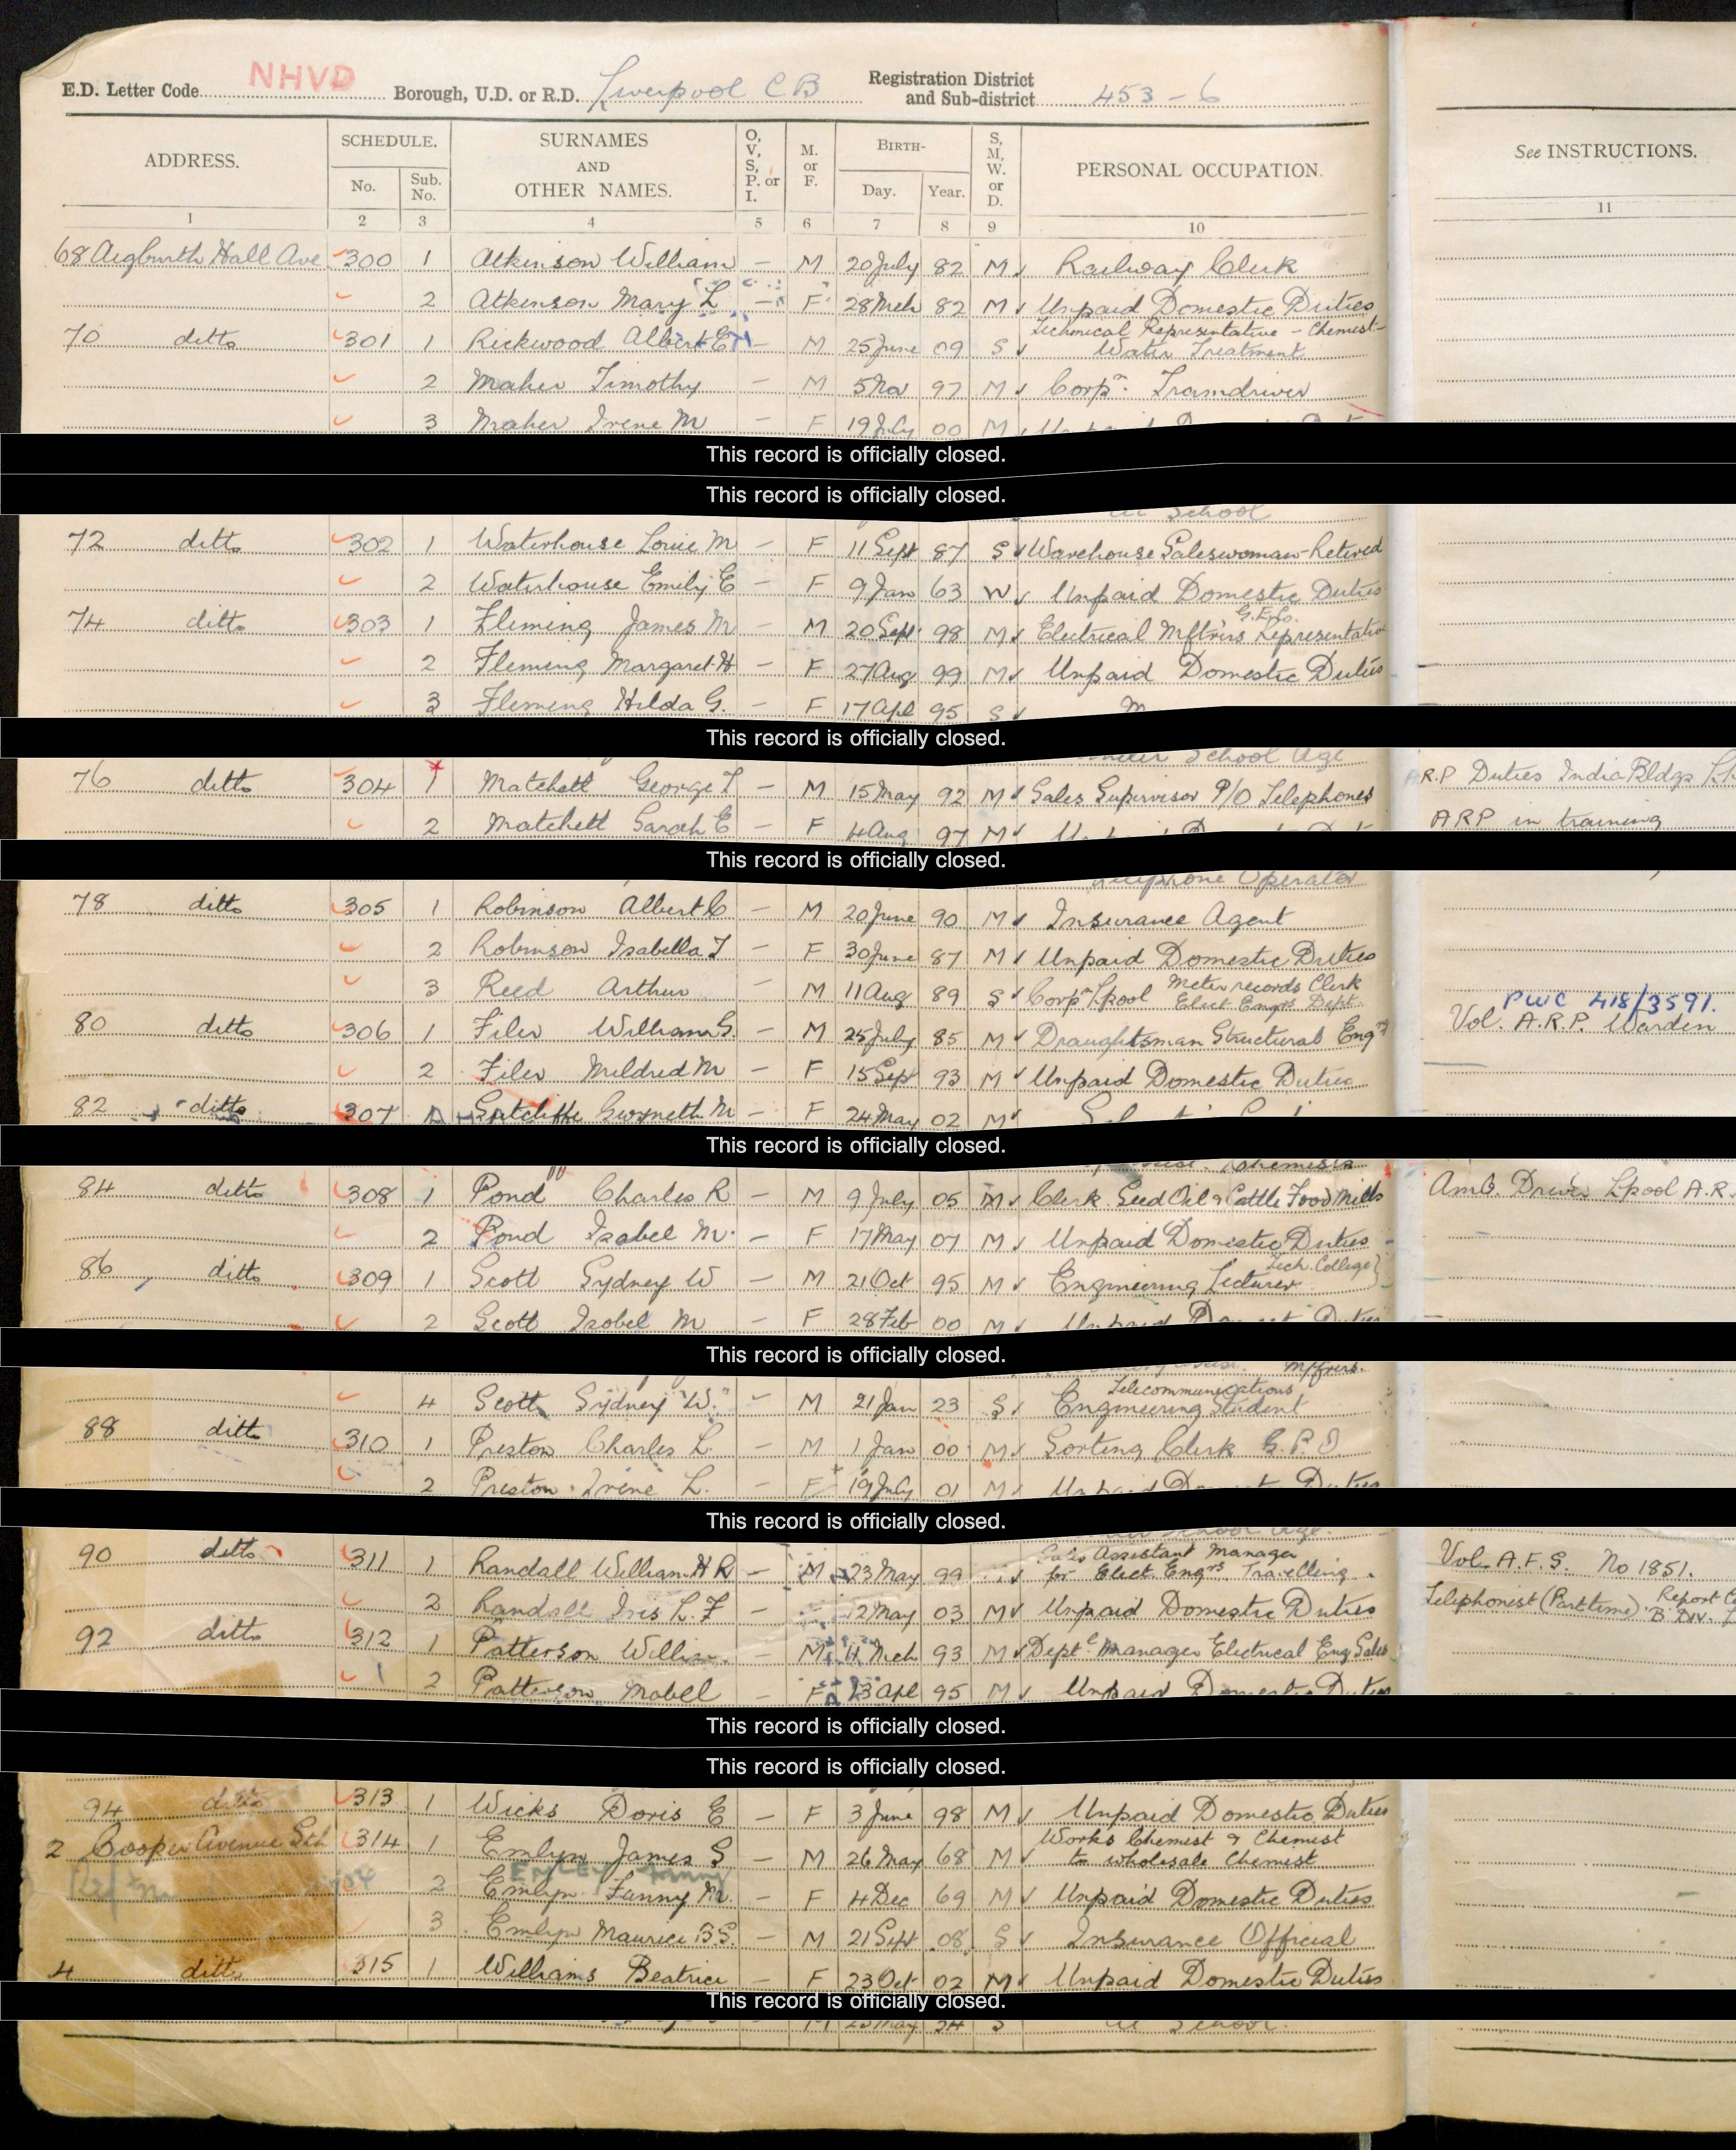 E.D. Letter Code NHVD Borough, U.D. or R.D. Liverpool C B Registration District and Sub-district 453 - 6
ADDRESS. SCHEDULE. No. Sub. No. SURNAMES AND OTHER NAMES. O, V, S, P. or I. M. or F. BIRTH- Day. Year. S, M, W. or D. PERSONAL OCCUPATION. See INSTRUCTIONS.
1 2 3 4 5 6 7 8 9 10 11
68 Aigburth Hall Ave 300 1 Atkinson William – M 20 July 82 M Railway Clerk
2 Atkinson Mary L – F 28 Mch 82 M Unpaid Domestic Duties
70 ditto 301 1 Rickwood Albert E – M 25 June 09 S Technical Representative – Chemist – Water Treatment
2 Maher Timothy – M 5 Nov 97 M Corpn. Tramdriver
3 Maher Irene M – F 19 July 00 M
This record is officially closed.
This record is officially closed.
At School
72 ditto 302 1 Waterhouse Louie M – F 11 Sept 87 S Warehouse Saleswoman – Retired
2 Waterhouse Emily E – F 9 Jan 63 W Unpaid Domestic Duties
74 ditto 303 1 Fleming James M – M 20 Sept 98 M Electrical Mftrers Representative
2 Fleming Margaret H – F 27 Aug 99 M Unpaid Domestic Duties
3 Fleming Hilda G. – F 17 Apl 95 S
This record is officially closed.
Under School Age
76 ditto 304 1 Matchett George T – M 15 May 92 M Sales Supervisor P/O Telephones A.R.P Duties India Bldgs
2 Matchett Sarah E – F 4 Aug 97 M ARP in training
This record is officially closed.
Telephone Operator
78 ditto 305 1 Robinson Albert C – M 20 June 90 M Insurance Agent
2 Robinson Isabella J – F 30 June 87 M Unpaid Domestic Duties
3 Reed Arthur – M 11 Aug 89 S Corpn Lpool Meter records Clerk Elect. Engrs. Dept.
PWC 418/3591.
80 ditto 306 1 Filer William G. – M 25 July 85 M Draughtsman Structural Engrs Vol. A.R.P. Warden
2 Filer Mildred M – F 15 Sept 93 M Unpaid Domestic Duties
82 ditto 307 Sutcliffe Gwyneth M – F 24 May 02 M
This record is officially closed.
84 ditto 308 1 Pond Charles R – M 9 July 05 M Clerk Seed Oil & Cattle Food Mills Amb. Driver Lpool A.R.
2 Pond Isabel M. – F 17 May 07 M Unpaid Domestic Duties
86 ditto 309 1 Scott Sydney W – M 21 Oct 95 M Engineering Lecturer Tech. College
2 Scott Isobel M – F 28 Feb 00 M Unpaid Domestic Duties
This record is officially closed.
Mffrers.
4 Scott Sydney "W." – M 21 Jan 23 S Telecommunications Engineering Student
88 ditto 310 1 Preston Charles L. – M 1 Jan 00 M Sorting Clerk G.P.O
2 Preston Irene L. – F 19 July 01 M Unpaid Domestic Duties
This record is officially closed.
Under School Age.
90 ditto 311 1 Randall William H R – M 23 May 99 Sales Assistant Manager for Elect. Engrs. Travelling Vol. A.F.S. No 1851.
2 Randall Iris L. F – 12 May 03 M Unpaid Domestic Duties Telephonist (Part time). Report B. Div.
92 ditto 312 1 Patterson William – M 11 Mch 93 M Deptl Manager Electrical Eng Sales
2 Patterson Mabel – F 13 Apl 95 M Unpaid Domestic Duties
This record is officially closed.
This record is officially closed.
94 ditto 313 1 Wicks Doris E – F 3 June 98 M Unpaid Domestic Duties
2 Cooper Avenue Sth 314 1 Emlyn James S – M 26 May 68 M Works Chemist & Chemist to wholesale Chemist
2 Emlyn Fanny M. – F 4 Dec 69 M Unpaid Domestic Duties
3 Emlyn Maurice B.S. – M 21 Sept 08 S Insurance Official
4 ditto 315 1 Williams Beatrice – F 23 Oct 02 M Unpaid Domestic Duties
This record is officially closed.
M 23 May 34 S At School.